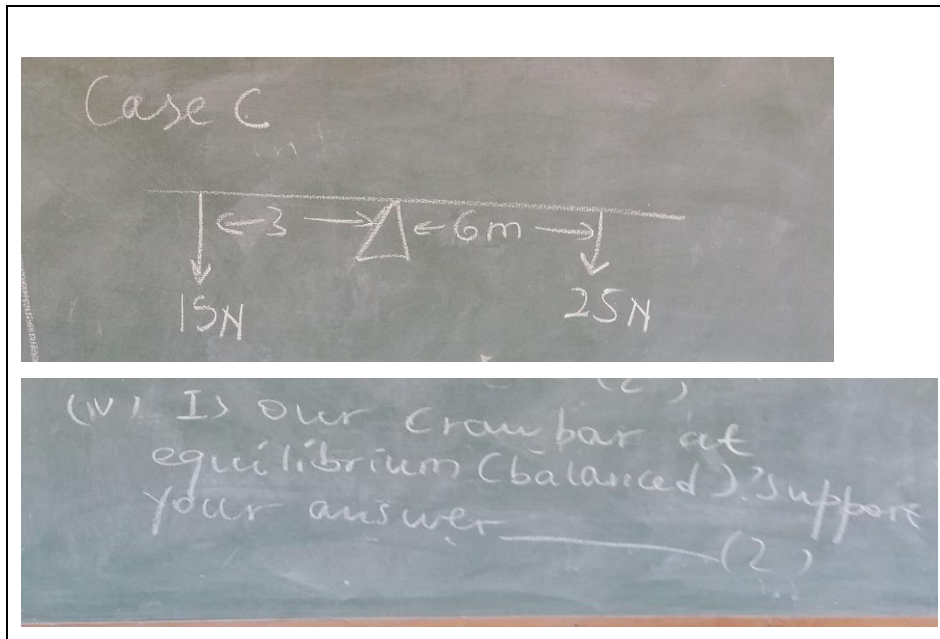 Case C
←3→ ←6m→
15N 25N
(iv) Is our crowbar at
equilibrium (balanced)? support
your answer (2)